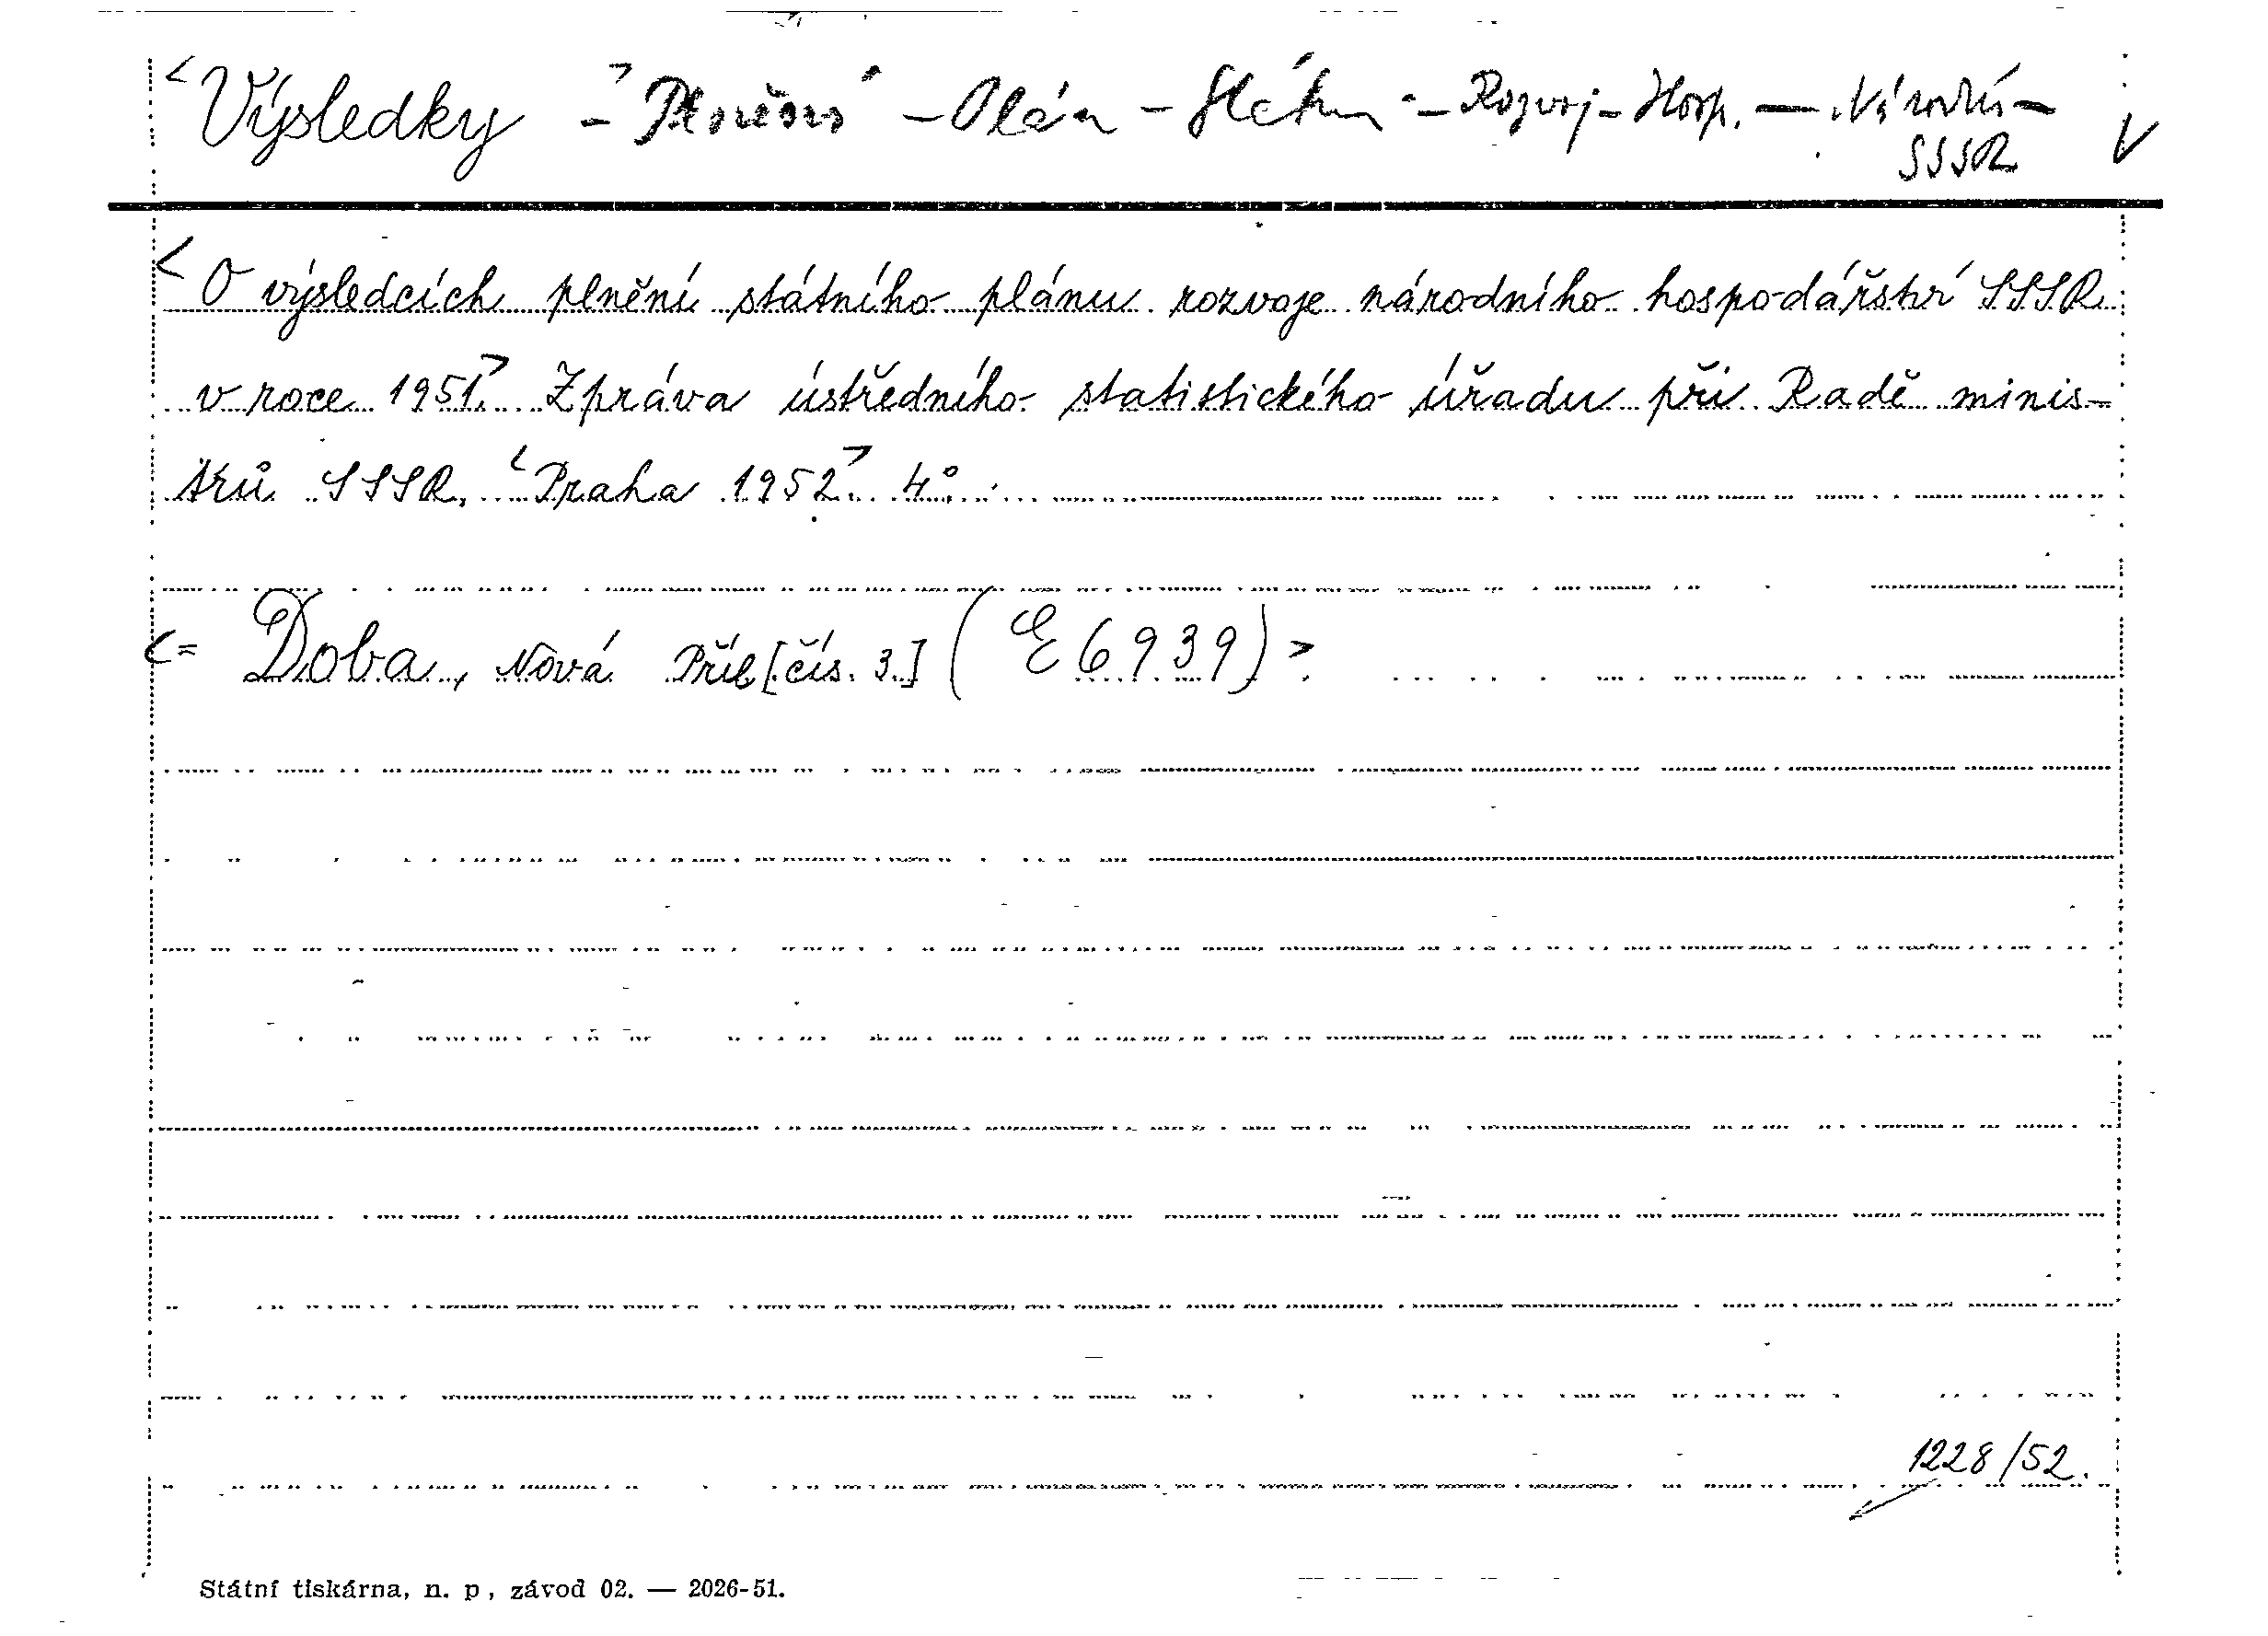 <Výsledky> - Plnění - Plán - Státní - Rozvoj - Hosp. - Národní -
SSSR
V
<O výsledcích plnění státního plánu rozvoje národního hospodářství SSSR
v roce 1951.> Zpráva ústředního statistického úřadu při Radě minis-
trů SSSR. <Praha 1952>. 4°.
<= Doba, Nová Příl [čís. 3.] (E 6939)>
1228/52.
Státní tiskárna, n. p., závod 02. — 2026-51.